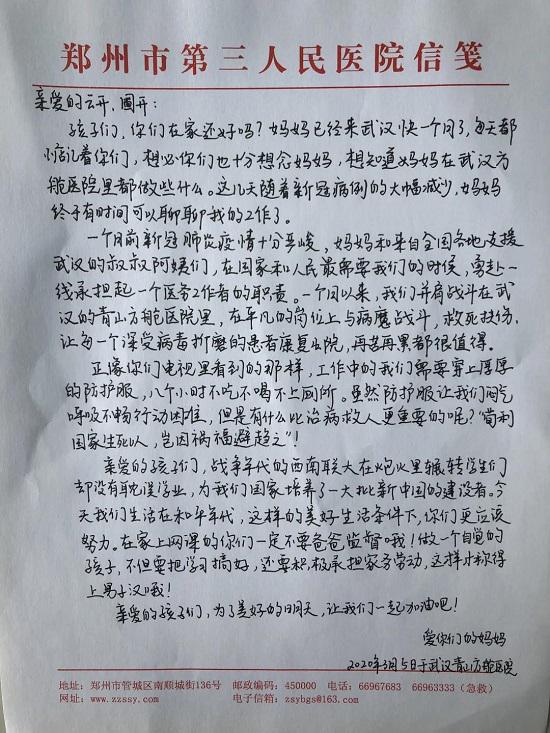 郑州市第三人民医院信笺
亲爱的云开、圃开：
孩子们，你们在家还好吗？妈妈已经来武汉快一个月了，每天都
惦记着你们，想必你们也十分想念妈妈，想知道妈妈在武汉方
舱医院里都做些什么。这几天随着新冠病例的大幅减少，妈妈
终于有时间可以聊聊我的工作了。
一个月前新冠肺炎疫情十分严峻，妈妈和来自全国各地支援
武汉的叔叔阿姨们，在国家和人民最需要我们的时候，奔赴一
线承担起一个医务工作者的职责。一个月以来，我们并肩战斗在武
汉的青山方舱医院里，在平凡的岗位上与病魔战斗，救死扶伤，
让每一个深受病毒折磨的患者康复出院，再苦再累都很值得。
正像你们电视里看到的那样，工作中的我们需要穿上厚厚
的防护服，八个小时不吃不喝不上厕所。虽然防护服让我们闷气
呼吸不畅行动困难，但是有什么比治病救人更重要的呢？“苟利
国家生死以，岂因祸福避趋之”！
亲爱的孩子们，战争年代的西南联大在炮火里辗转学生们
却没有耽误学业，为我们国家培养了一大批新中国的建设者。今
天我们生活在和平年代，这样的美好生活条件下，你们更应该
努力。在家上网课的你们一定不要爸爸监督哦！做一个自觉的
孩子，不但要把学习搞好，还要积极承担家务劳动，这样才称得
上男子汉哦！
亲爱的孩子们，为了美好的明天，让我们一起加油吧！
爱你们的妈妈
2020年3月5日于武汉青山方舱医院
地址：郑州市管城区南顺城街136号 邮政编码：450000 电话：66967683 66963333（急救）
网址：www.zzssy.com 电子信箱：zsybgs@163.com